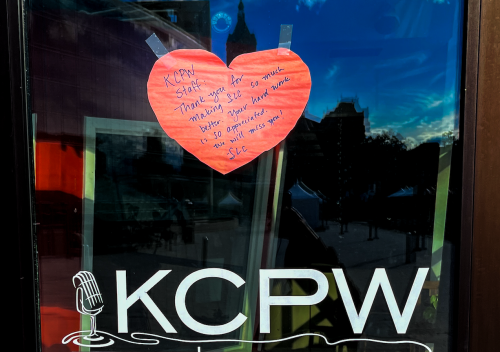 KCPW
Staff
Thank you for
making SLC so much
better. Your hard work
is so appreciated.
We will miss you!
SLC
KCPW